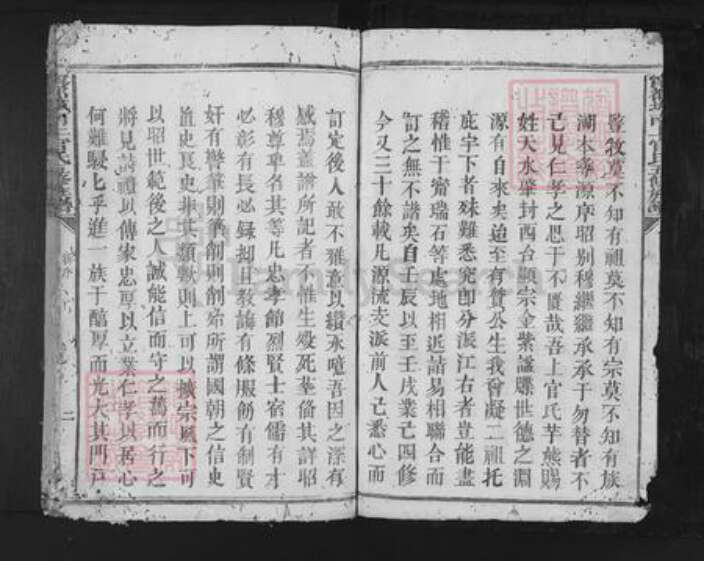 豎牧莫不知有祖莫不知有宗莫不知有族
溯木尋源序昭别穆繼繼承承于勿替者不
已見仁孝之思于不匱哉吾上官氏芋熊賜
姓天水肇封西台顯宗金紫謚牒世德之淵
源有自來矣迨至有贊公生我曾凝二祖托
庇宇下者殊難悉究即分派江右者豈能盡
稽惟于甯瑞石等處地相近誼易相聯合而
訂之無不諧矣自壬辰以至壬戌業己四修
今又三十餘載凡源流支派前人己悉心而
訂定後人敢不雅意以纘承噫吾因之深有
感焉蓋譜所記者不惟生殁死塟俻其詳昭
穆尊卑名其等凡忠孝節烈賢士宿儒有才
必彰有長必録却且教誨有條服飾有制賢
奸有辨筆則筆削則削帘所謂國朝之信史
以昭世範後之人誠能信而守之篤而行之
將見詩禮以傳家忠厚以立業仁孝以居心
何難駸匕乎進一族于醕厚而光大其門戸
二
FamilySearch